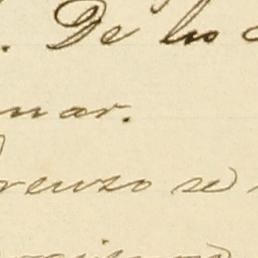 . De los
mar.
renzo se